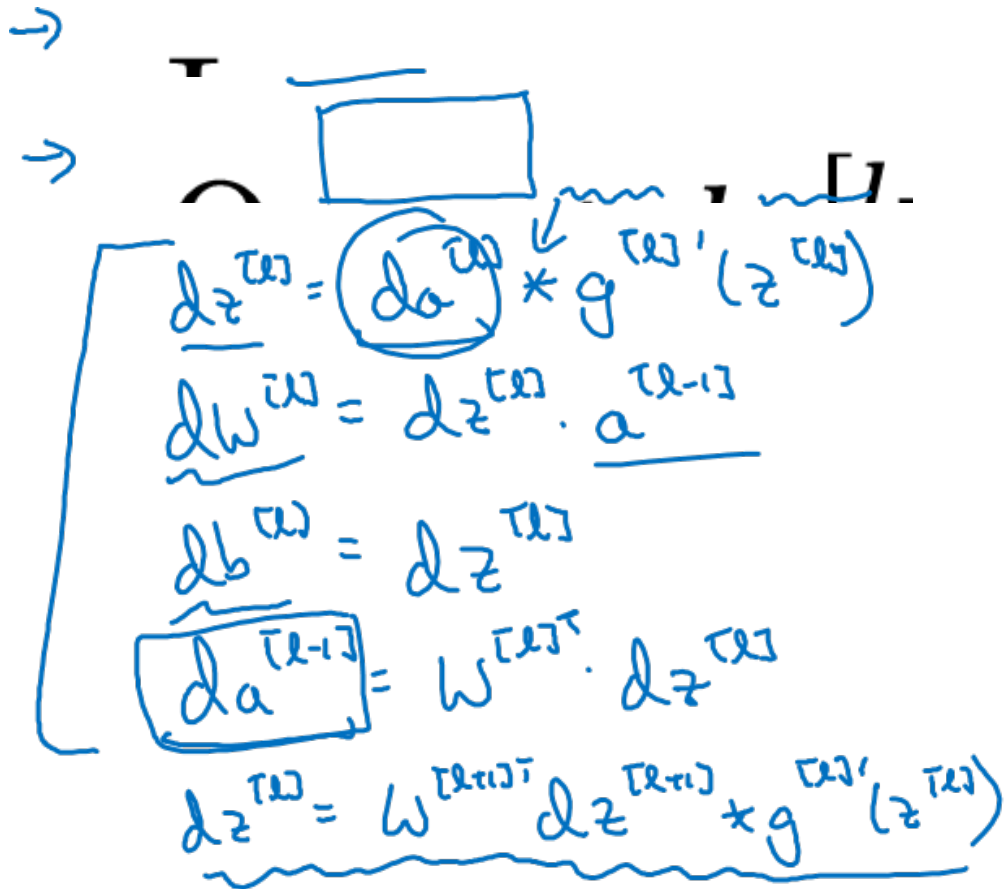 →
→
dz^[l] = da^[l] * g^[l]'(z^[l])
dW^[l] = dz^[l] · a^[l-1]
db^[l] = dz^[l]
da^[l-1] = W^[l]T · dz^[l]
dz^[l] = W^[l+1]T dz^[l+1] * g^[l]'(z^[l])